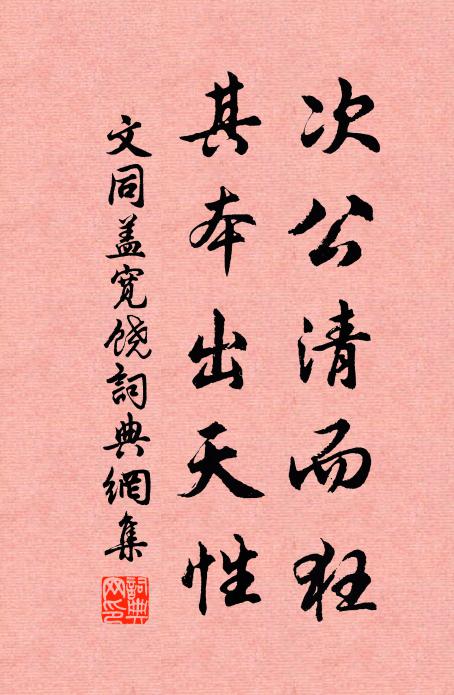 次公清而狂
其本出天性
文同盖寛饶詞典網集
詞典網印